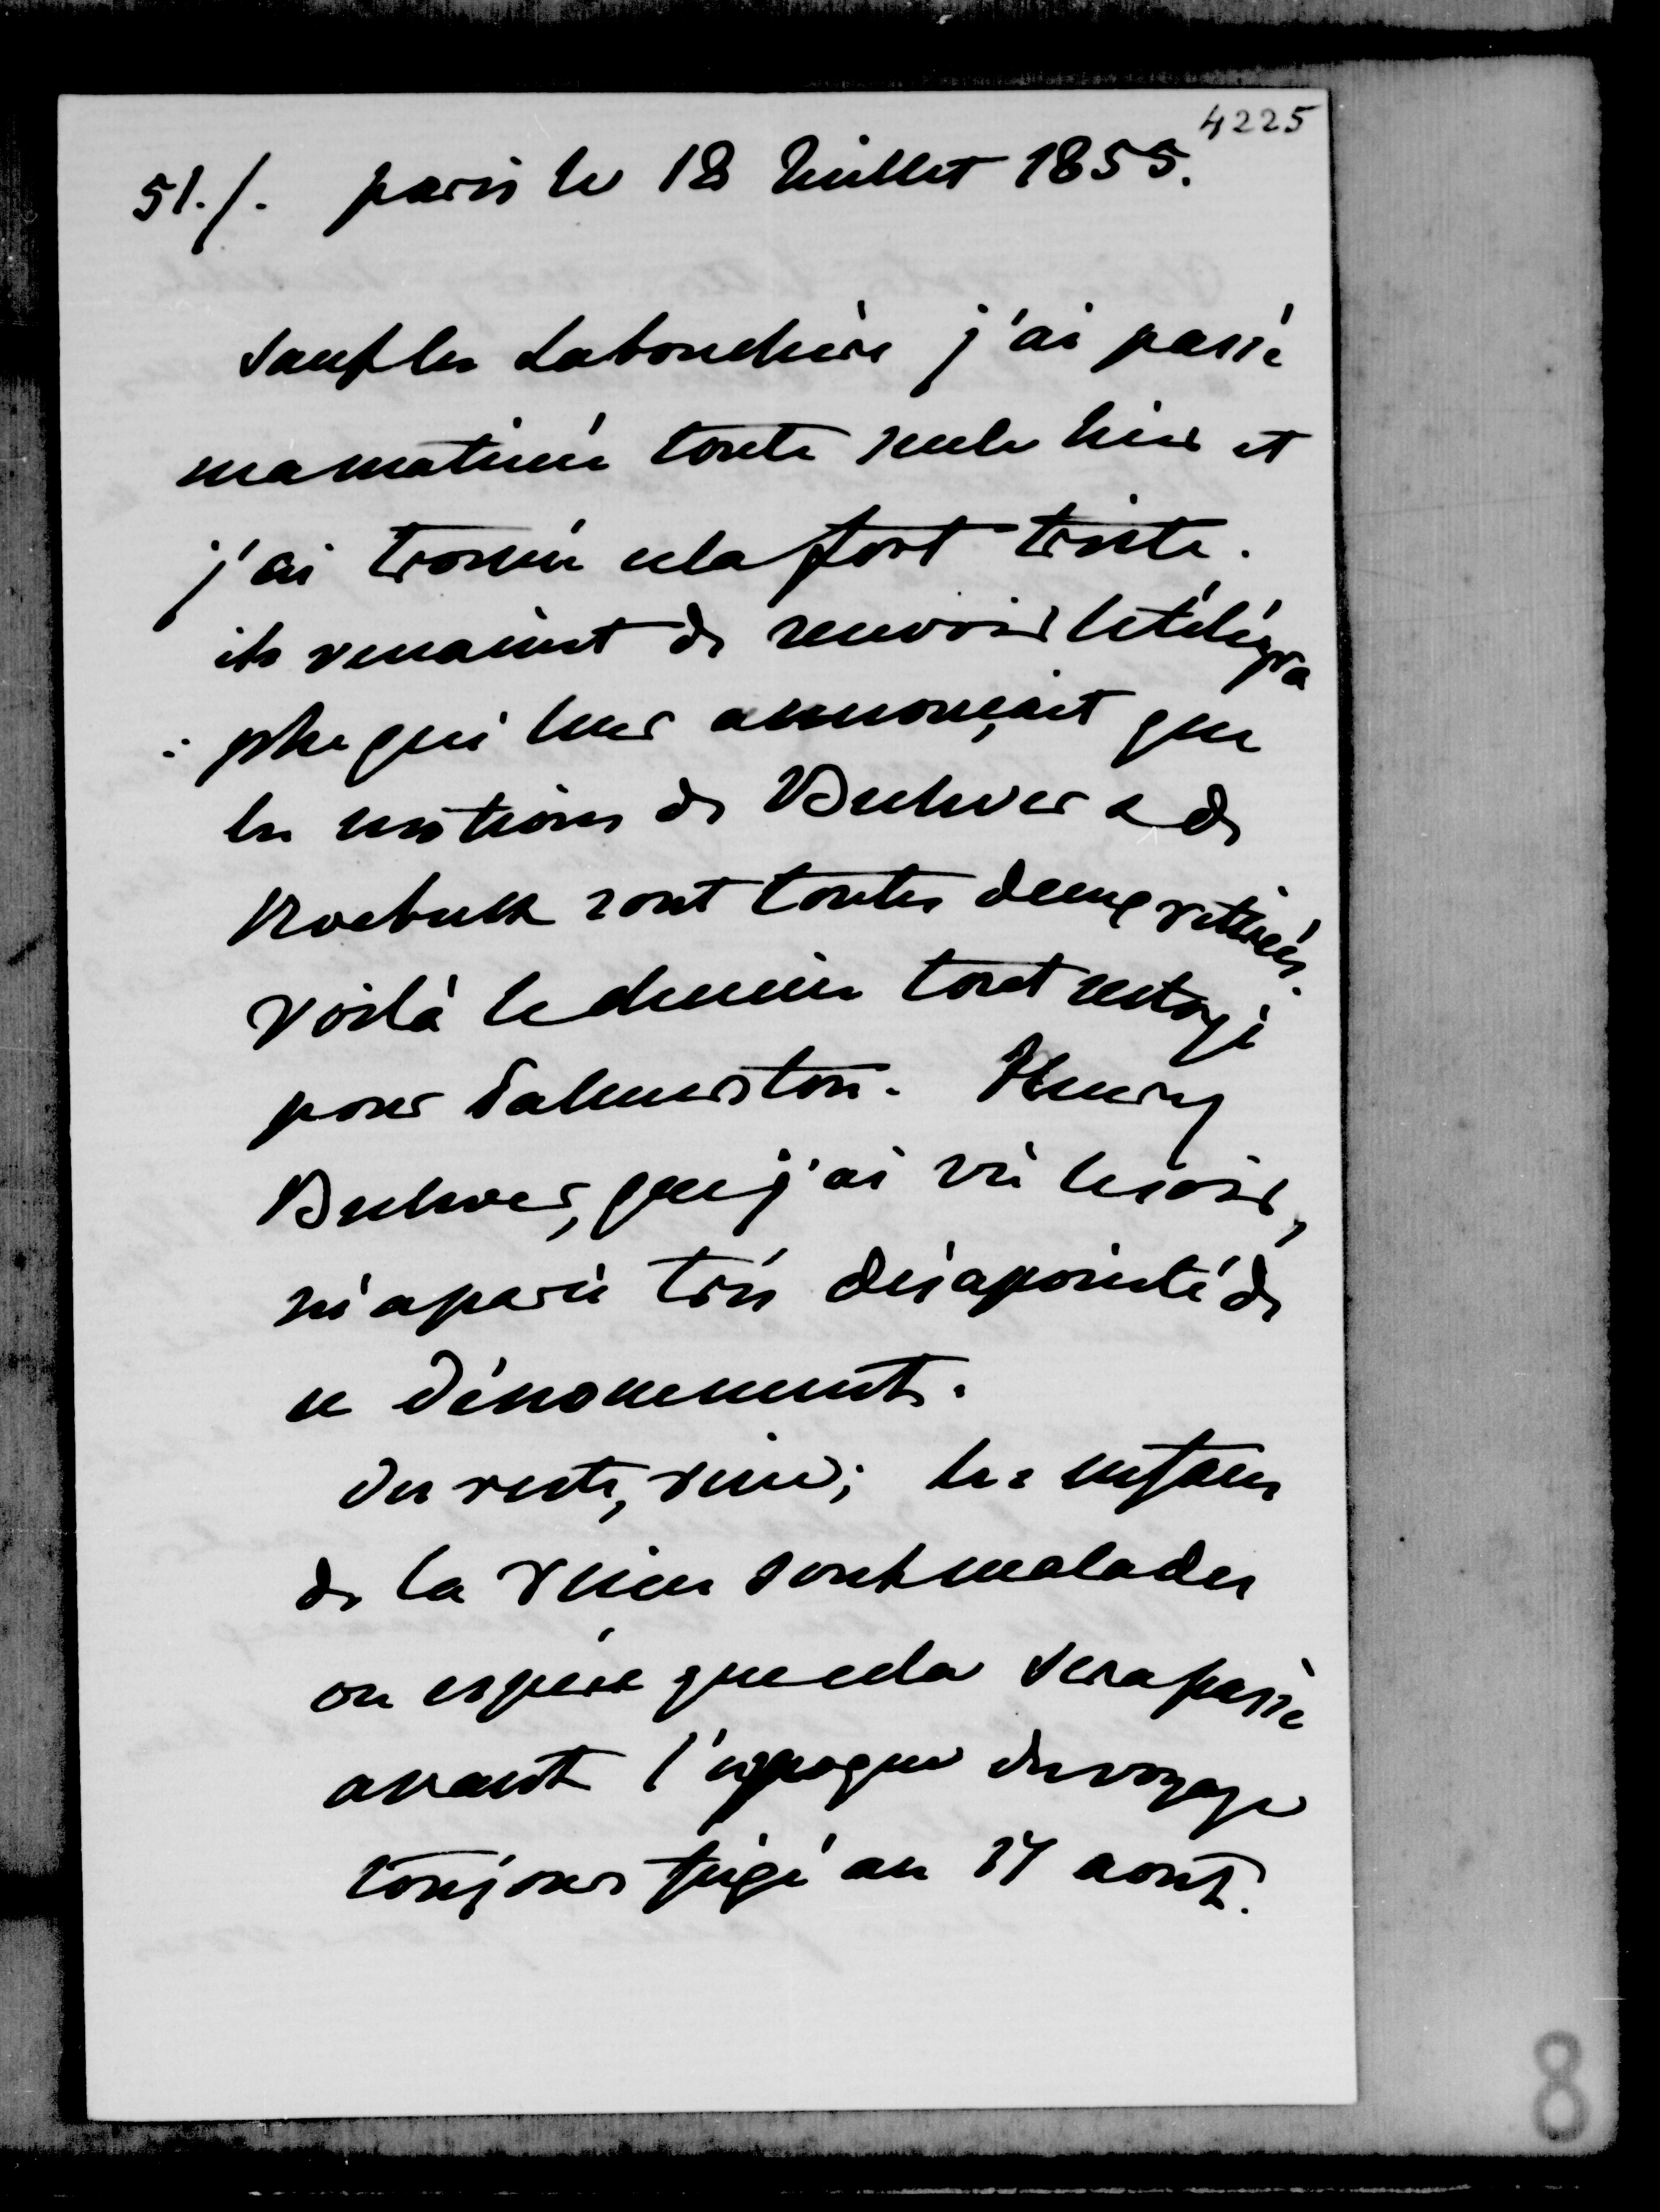 4225
51./. paris le 18 Juillet 1855.
sauf les Labouchère j'ai passé
ma matinée toute seule hier et
j'ai trouvé cela fort triste.
ils venaient de recevoir le télégra
:phe qui leur annonçait que
les motions de Bulwer & de
Roebuck sont toutes deux retirées.
voilà le chemin tout nettoyé
pour Palmerston. Henry
Bulwer, que j'ai vu le soir,
m'a paru très désapointé de
ce dénouement.
du reste, rien; les enfans
de la reine sont malades
on espère que cela sera passé
avant l'époque du voyage
toujours fixé au 17 aout.
8